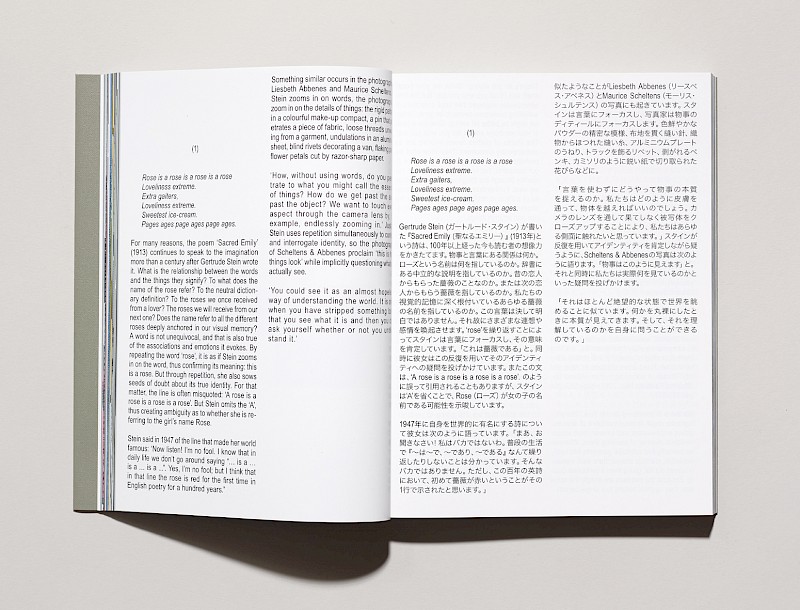 (1)
Rose is a rose is a rose is a rose
Loveliness extreme.
Extra gaiters,
Loveliness extreme.
Sweetest ice-cream.
Pages ages page ages page ages.
For many reasons, the poem 'Sacred Emily'
(1913) continues to speak to the imagination
more than a century after Gertrude Stein wrote
it. What is the relationship between the words
and the things they signify? To what does the
name of the rose refer? To the neutral diction-
ary definition? To the roses we once received
from a lover? The roses we will receive from our
next one? Does the name refer to all the different
roses deeply anchored in our visual memory?
A word is not unequivocal, and that is also true
of the associations and emotions it evokes. By
repeating the word 'rose', it is as if Stein zooms
in on the word, thus confirming its meaning: this
is a rose. But through repetition, she also sows
seeds of doubt about its true identity. For that
matter, the line is often misquoted: 'A rose is a
rose is a rose is a rose'. But Stein omits the 'A',
thus creating ambiguity as to whether she is re-
ferring to the girl's name Rose.
Stein said in 1947 of the line that made her world
famous: 'Now listen! I'm no fool. I know that in
daily life we don't go around saying "… is a …
is a … is a …". Yes, I'm no fool; but I think that
in that line the rose is red for the first time in
English poetry for a hundred years.'
Something similar occurs in the
Liesbeth Abbenes and Maurice
Stein zooms in on words, the
zoom in on the details of things: the rigid
in a colourful make-up compact, a pin that
etrates a piece of fabric, loose threads
ing from a garment, undulations in an
sheet, blind rivets decorating a van,
flower petals cut by razor-sharp paper.
'How, without using words, do you
trate to what you might call the
of things? How do we get past the
past the object? We want to touch
aspect through the camera lens by,
example, endlessly zooming in.'
Stein uses repetition simultaneously to
and interrogate identity, so the
of Scheltens & Abbenes proclaim 'this is
things look' while implicitly questioning what
actually see.
'You could see it as an almost
way of understanding the world. It is
when you have stripped something
that you see what it is and then you
ask yourself whether or not you
stand it.'
(1)
Rose is a rose is a rose is a rose
Loveliness extreme.
Extra gaiters,
Loveliness extreme.
Sweetest ice-cream.
Pages ages page ages page ages.
Gertrude Stein (ガートルード・スタイン) が書い
た『Sacred Emily (聖なるエミリー)』(1913年)と
いう詩は、100年以上経った今も読者の想像力
をかきたてます。物事と言葉にある関係は何か。
ローズという名前は何を指しているのか。辞書に
ある中立的な説明を指しているのか。昔の恋人
からもらった薔薇のことなのか。または次の恋
人からもらう薔薇を指しているのか。私たちの
視覚的記憶に深く根付いているあらゆる薔薇
の名前を指しているのか。この言葉は決して明
白ではありません。それ故にさまざまな連想や
感情を喚起させます。'rose'を繰り返すことによ
ってスタインは言葉にフォーカスし、その意味
を肯定しています。「これは薔薇である」と。同
時に彼女はこの反復を用いてそのアイデンティ
ティへの疑問を投げかけています。またこの文
は、'A rose is a rose is a rose is a rose'. のよう
に誤って引用されることもありますが、スタイン
は'A'を省くことで、Rose (ローズ) が女の子の名
前である可能性を示唆しています。
1947年に自身を世界的に有名にする詩につい
て彼女は次のように語っています。「まあ、お
聞きなさい！私はバカではないわ。普段の生活
で『〜は〜で、〜であり、〜である』なんて繰り
返したりしないことは分かっています。そんな
バカではありません。ただし、この百年の英詩
において、初めて薔薇が赤いということがその
1行で示されたと思います。」
似たようなことがLiesbeth Abbenes (リースベ
ス・アベネス) とMaurice Scheltens (モーリス・
シュルテンス) の写真にも起きています。スタ
インは言葉にフォーカスし、写真家は物事の
ディティールにフォーカスします。色鮮やかな
パウダーの精密な模様、布地を貫く縫い針、織
物からほつれた縫い糸、アルミニウムプレート
のうねり、トラックを飾るリベット、剥がれるペ
ンキ、カミソリのように鋭い紙で切り取られた
花びらなどに。
「言葉を使わずにどうやって物事の本質
を捉えるのか。私たちはどのように皮膚を
通って、物体を越えればいいのでしょう。カ
メラのレンズを通して果てしなく被写体をク
ローズアップすることにより、私たちはあらゆ
る側面に触れたいと思っています。」スタインが
反復を用いてアイデンティティを肯定しながら疑
うように、Scheltens & Abbenesの写真は次のよ
うに語ります。「物事はこのように見えます」と。
それと同時に私たちは実際何を見ているのかと
いった疑問を投げかけます。
「それはほとんど絶望的な状態で世界を眺
めることに似ています。何かを丸裸にしたと
きに本質が見えてきます。そして、それを理
解しているのかを自身に問うことができる
のです。」